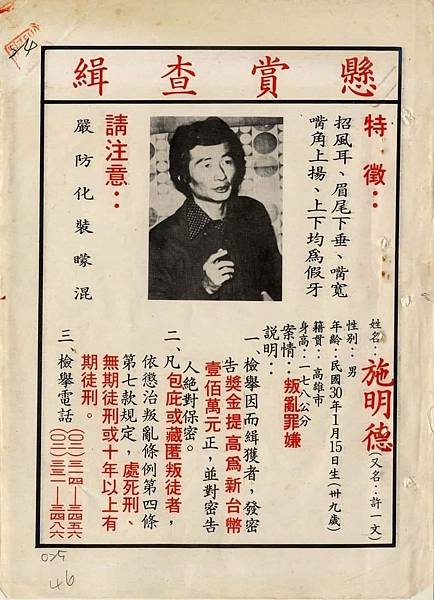 懸賞查緝
特徵：
招風耳、眉尾下垂、嘴寬
嘴角上揚、上下均為假牙
請注意：
嚴防化裝矇混
姓名：施明德（又名：許一文）
性別：男
年齡：民國30年1月15日生（卅九歲）
籍貫：高雄市
身高：一七八公分
案情：叛亂罪嫌
說明：
一、檢舉因而緝獲者，發密
告獎金提高為新台幣
壹佰萬元正，並對密告
人絕對保密。
二、凡包庇或藏匿叛徒者，
依懲治叛亂條例第四條
第七款規定，處死刑、
無期徒刑或十年以上有
期徒刑。
三、檢舉電話
（〇二）三一四—三四五六
（〇二）三三一—三四八六
075
46